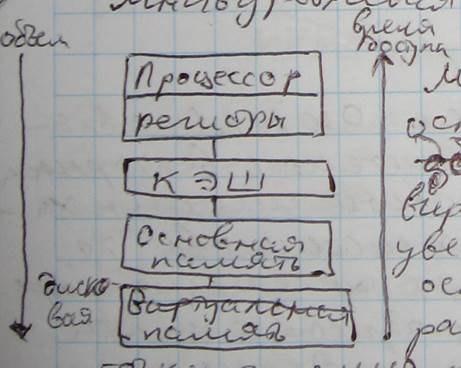 объем
время
доступа
Процессор
регистры
КЭШ
Основная
память
диско
вая
Виртуальная
память
М
осн
вир
уве
осн
ра